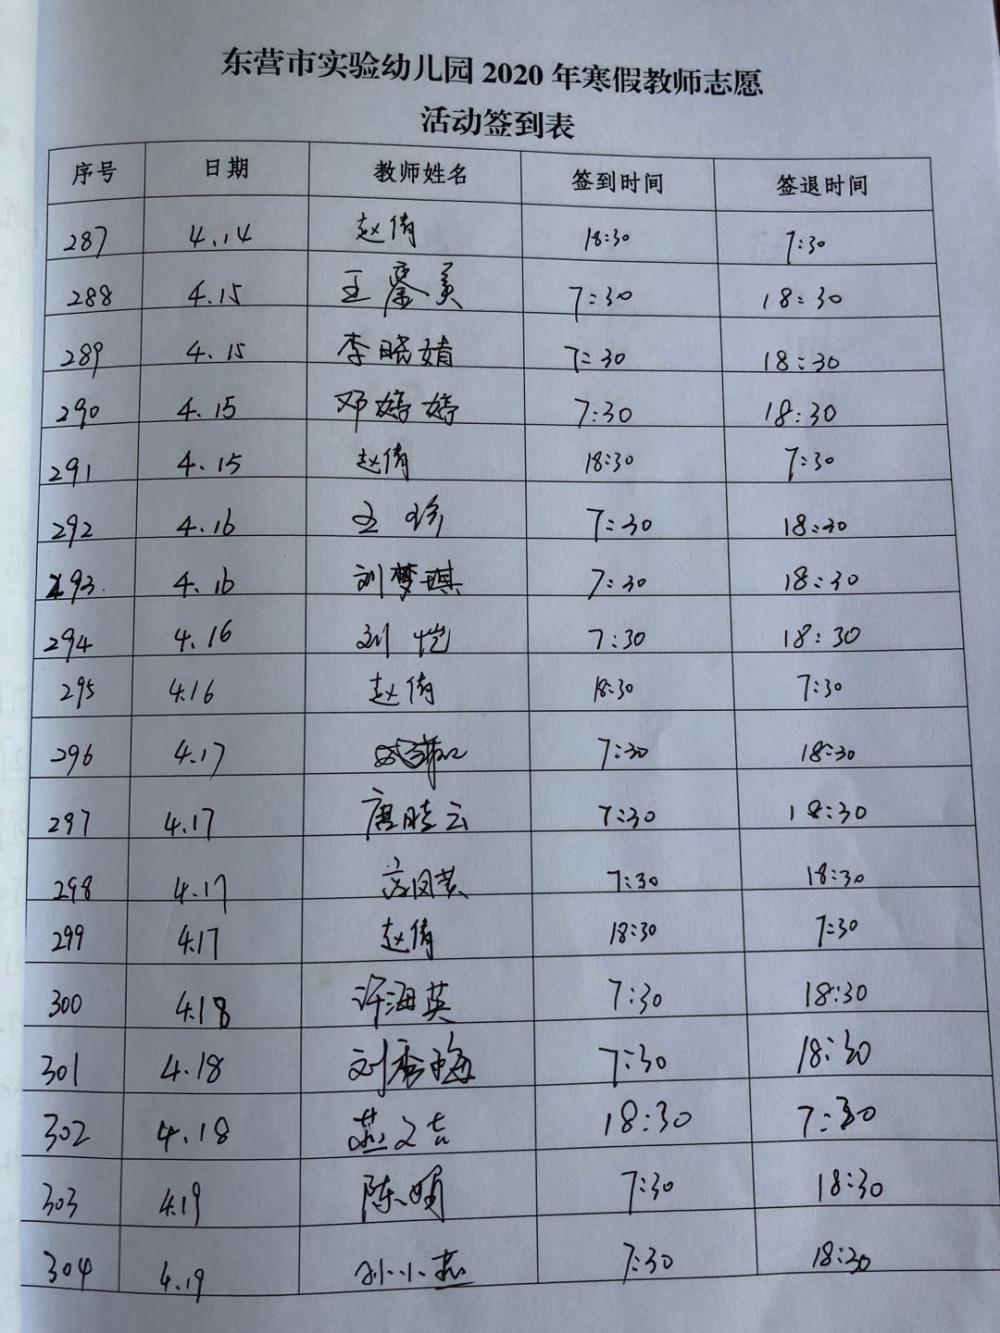 东营市实验幼儿园2020年寒假教师志愿
活动签到表
序号 日期 教师姓名 签到时间 签退时间
287 4.14 赵倩 18:30 7:30
288 4.15 王 美 7:30 18:30
289 4.15 李晓婧 7:30 18:30
290 4.15 邓婷婷 7:30 18:30
291 4.15 赵倩 18:30 7:30
292 4.16 王珍 7:30 18:30
293. 4.16 刘梦琪 7:30 18:30
294 4.16 刘恺 7:30 18:30
295 4.16 赵倩 18:30 7:30
296 4.17 7:30 18:30
297 4.17 唐晓云 7:30 18:30
298 4.17 7:30 18:30
299 4.17 赵倩 18:30 7:30
300 4.18 许海英 7:30 18:30
301 4.18 刘秀梅 7:30 18:30
302 4.18 燕文吉 18:30 7:30
303 4.19 陈娟 7:30 18:30
304 4.19 孙小燕 7:30 18:30